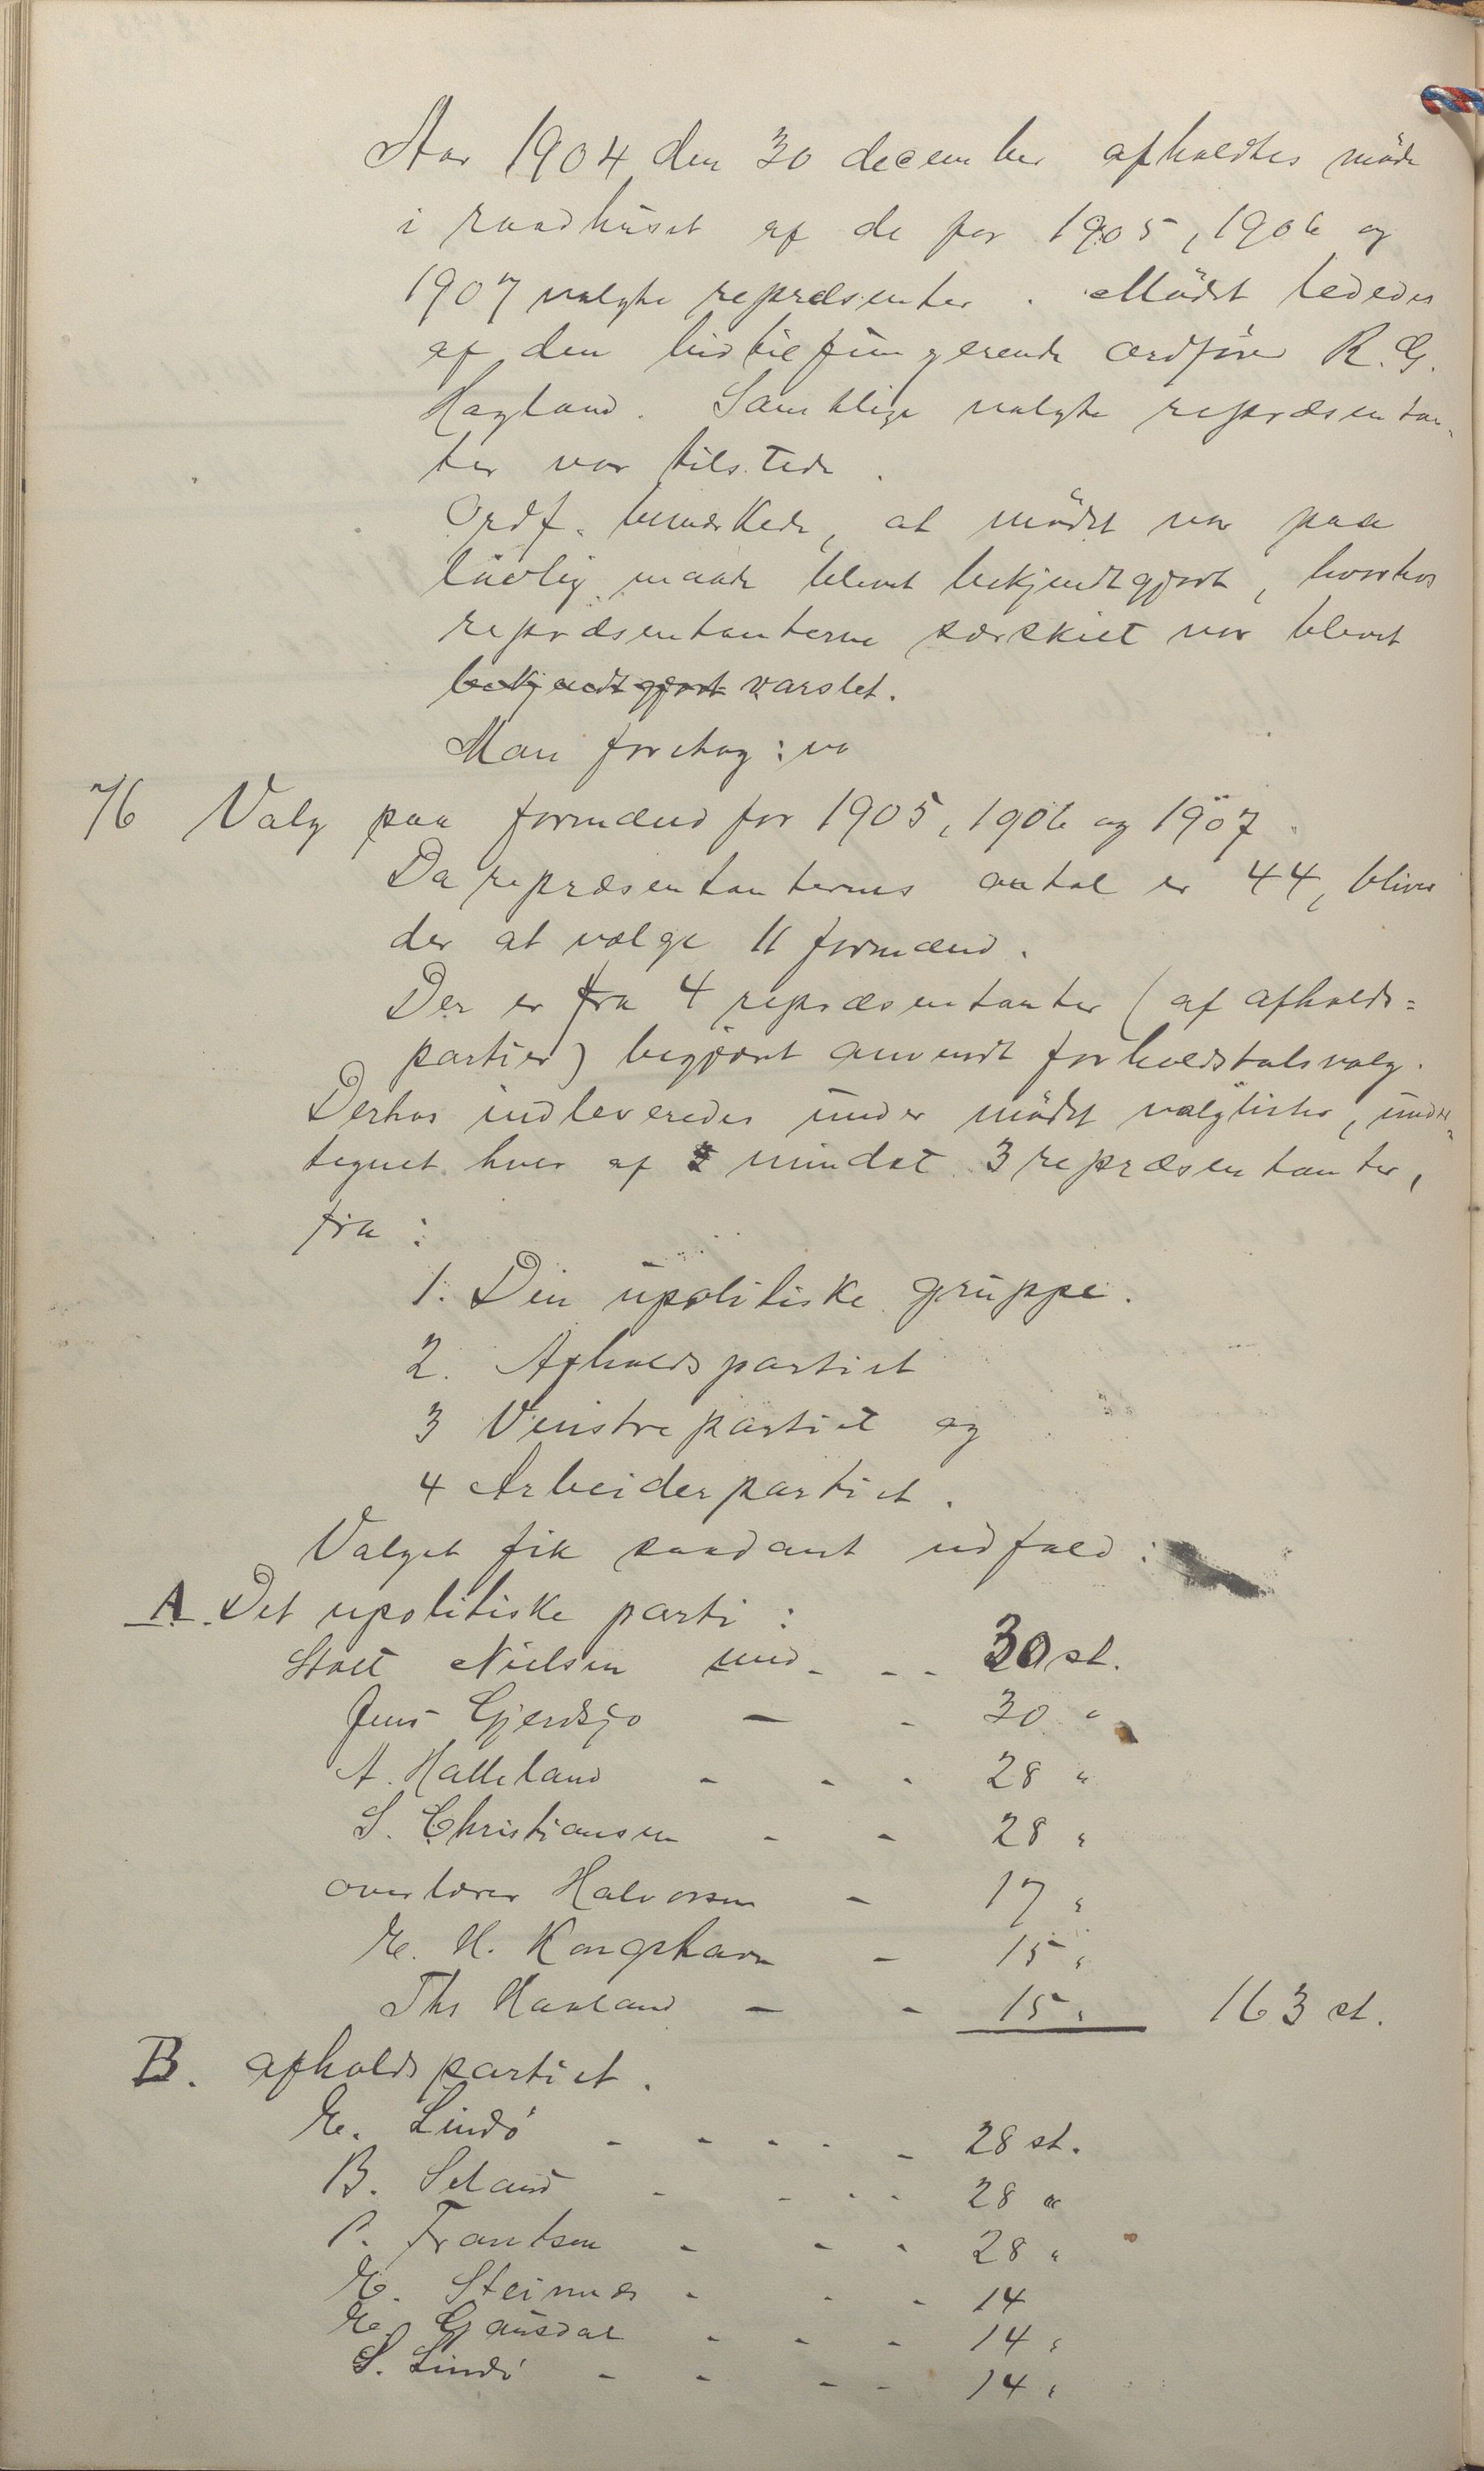 Aar 1904 den 30 december afholdtes møde
i raadhuset af de for 1905, 1906 og
1907 valgte repræsenter. Mødet lededes
af den hidtil fungerende ordfører R. G.
Hagland. Samtlige valgte repræsentan-
ter var tilstede.
Ordf. bemærkede, at mødet var paa
lovlig maade blevet bekjendtgjort, hvorhos
repræsentanterne særskilt var blevet
bekjendtgjort varslet.
Man foretog: va
76 Valg paa formænd for 1905, 1906 og 1907.
Da repræsentanternes antal er 44, bliver
der at vælge 11 formænd.
Der er fra 4 repræsentanter (af afholds=
partiet) begjært anvendt forholdstalsvalg.
Derhos indleveredes under mødet valglister, under-
tegnet hver af mindst 3 repræsentanter,
fra:
1. Den upolitiske gruppe.
2. Afholdspartiet
3 Venstrepartiet og
4 Arbeiderpartiet.
Valget fik saadant udfald:
A. Det upolitiske parti:
Stolt Nielsen med - - 30 st.
Jens Gjerdsjø - - 30 "
A. Halleland - - - 28 "
S. Christiansen - - 28 "
overlærer Halvorsen - 17 "
E. H. Kongshavn - 15 "
Ths Haaland - - 15 " 163 st.
B. afholdspartiet.
E. Lindø - - - - - 28 st.
B. Seland - - - - 28 "
P. Frantsen - - - 28 "
E. Steinnes - - - 14
E. Gausdal - - - 14 "
S. Lindø - - - - 14 "